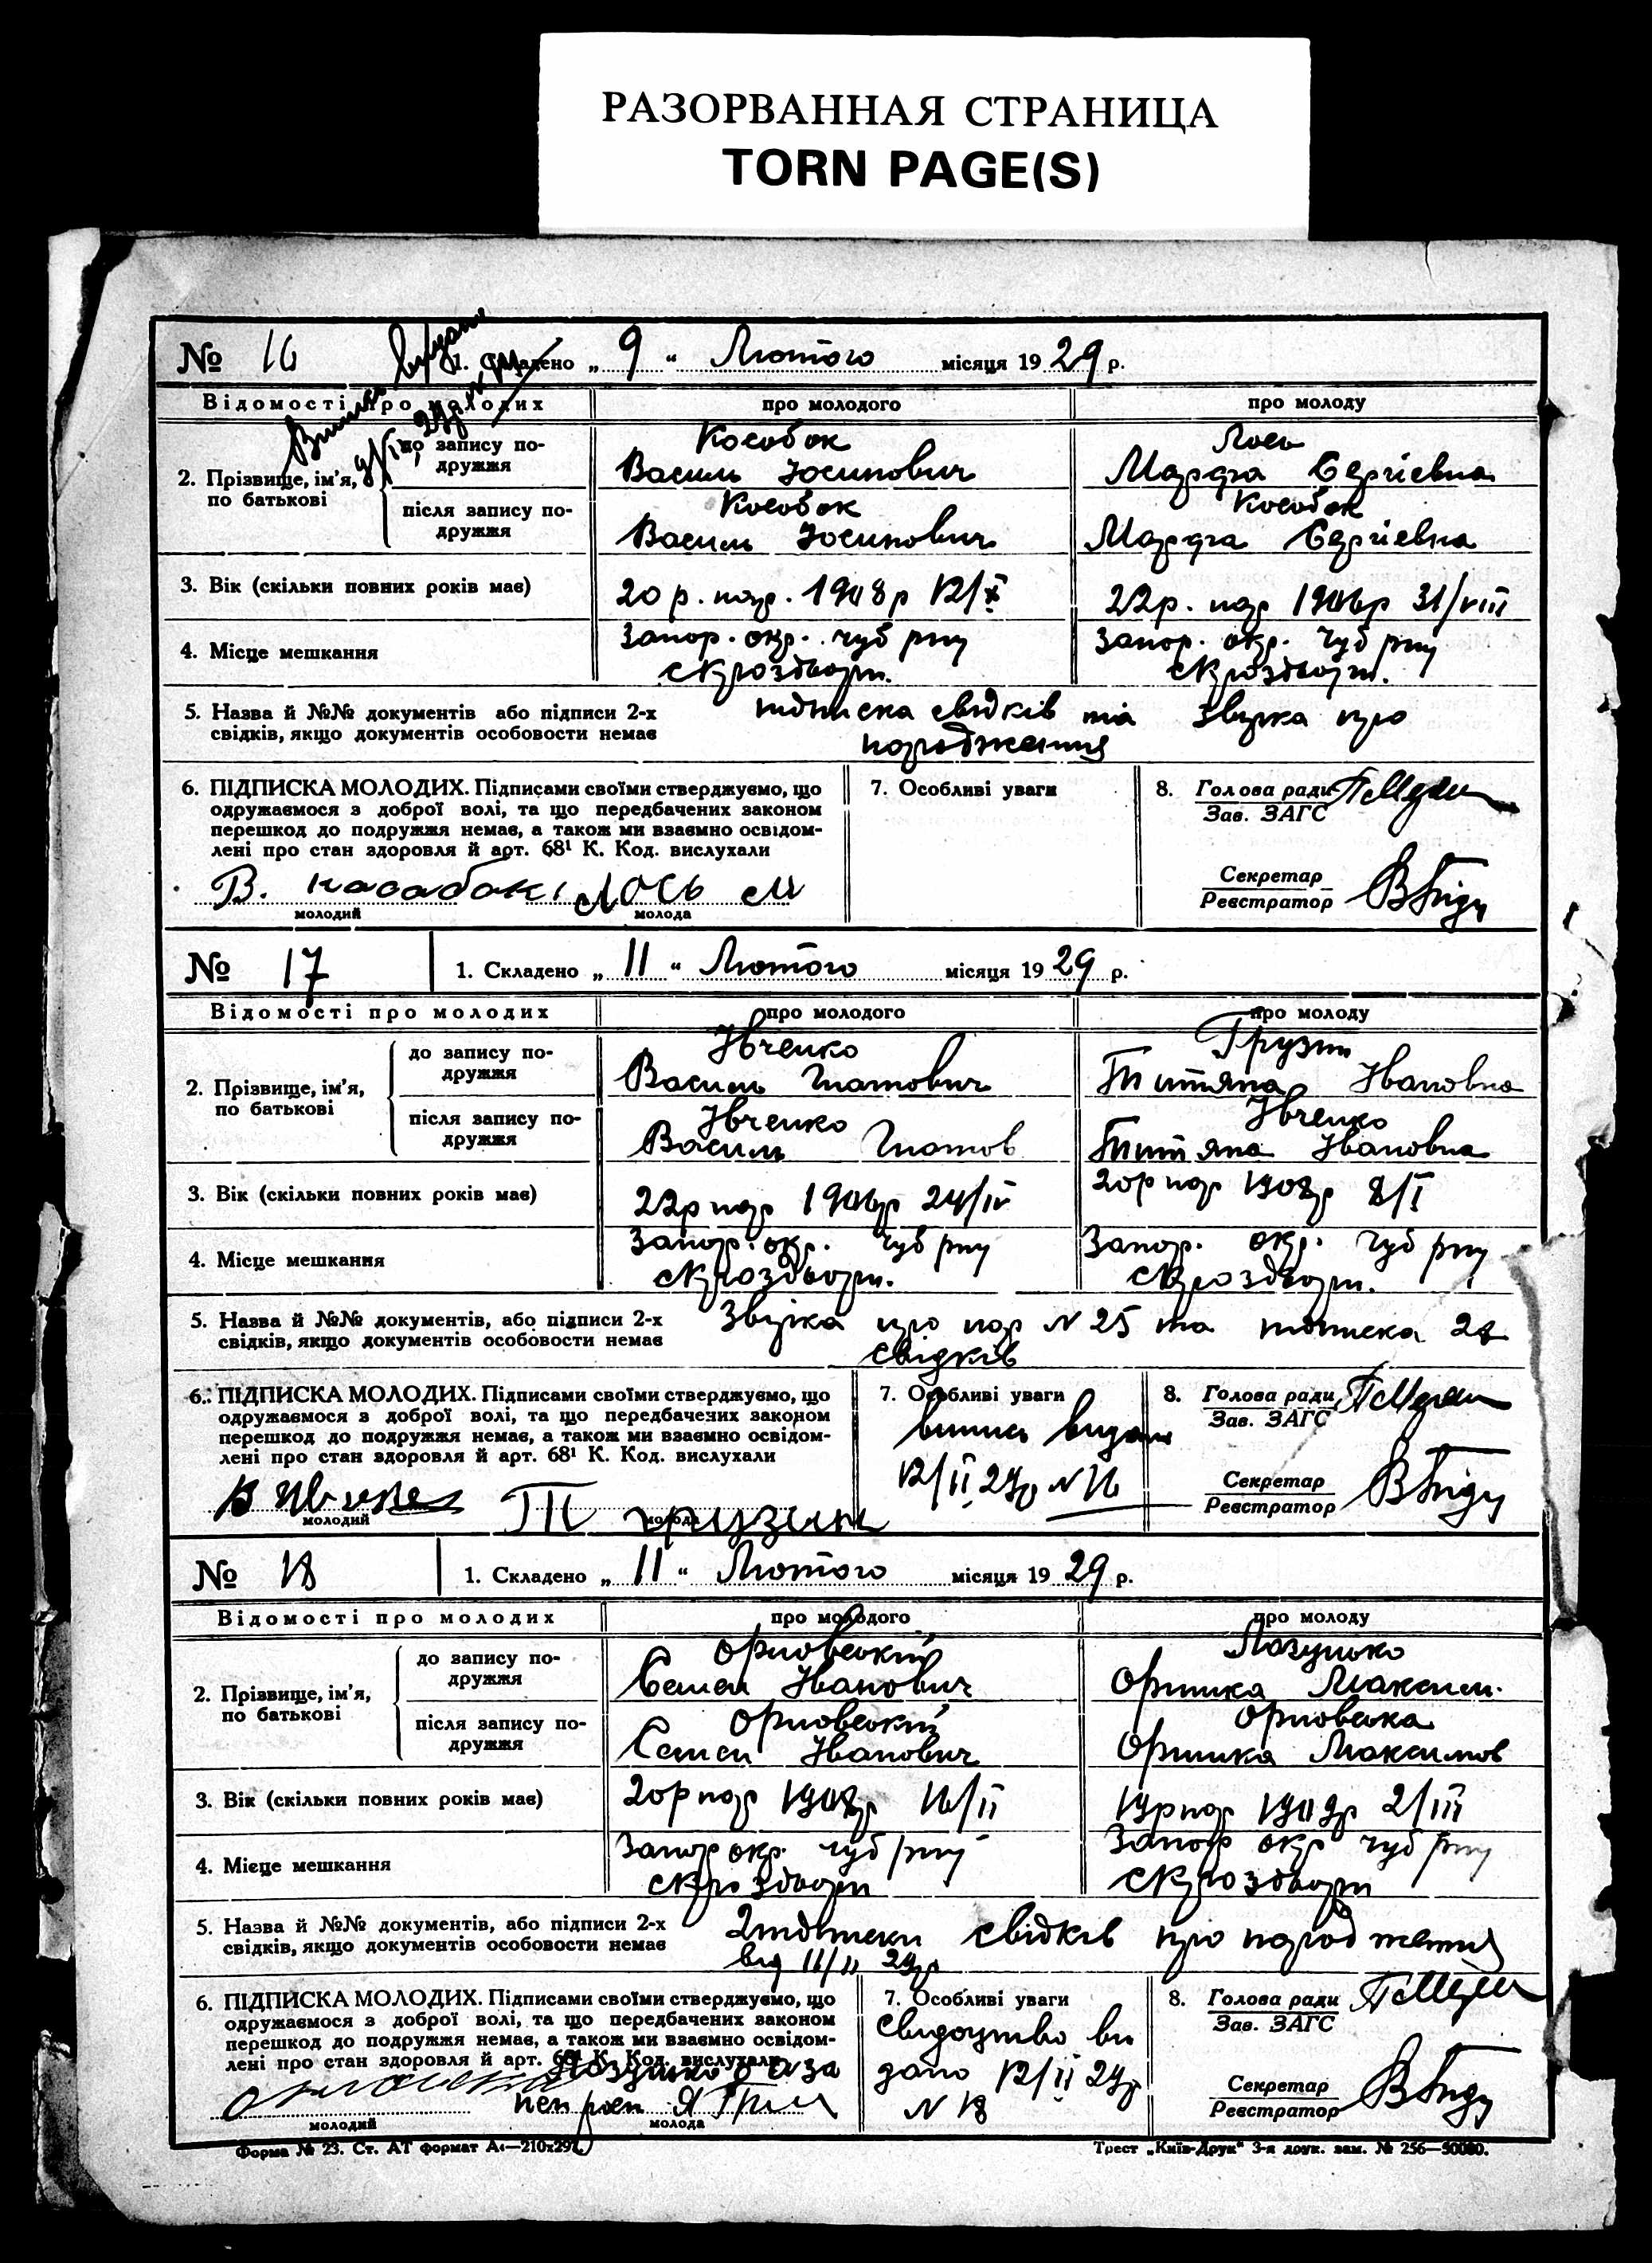 РАЗОРВАННАЯ СТРАНИЦА
TORN PAGE(S)
№ 16 1. Складено „ 9 “ Лютого місяця 19 29 р.
Відомості про молодих про молодого про молоду
2. Прізвище, ім'я, по батькові
до запису подружжя
Кособок Лось
Василь Йосипович Марфа Сергіевна
після запису по-
дружжя
Кособок Кособок
Василь Йосипович Марфа Сергіевна
3. Вік (скільки повних років має) 20 р. нар. 1908 р 12/X 22 р. нар 1906 р 31/VIII
4. Місце мешкання Запор. окр. Чуб рну Запор. окр. Чуб рну
5. Назва й №№ документів або підписи 2-х підписка свідків та звірка про
свідків, якщо документів особовости немає народження
6. ПІДПИСКА МОЛОДИХ. Підписами своїми стверджуємо, що 7. Особливі уваги 8. Голова ради
одружаємося з доброї волі, та що передбачених законом Зав. ЗАГС
перешкод до подружжя немає, а також ми взаємно освідом-
лені про стан здоровля й арт. 68¹ К. Код. вислухали
Секретар
В. касабок Лось М Реєстратор
молодий молода
№ 17 1. Складено „ 11 “ Лютого місяця 19 29 р.
Відомості про молодих про молодого про молоду
2. Прізвище, ім'я,
по батькові
до запису по-
дружжя
Івченко Грузин
Василь Гнатович Титяна Івановна
після запису по-
дружжя
Івченко Івченко
Василь Гнатов Титяна Івановна
3. Вік (скільки повних років має) 22 р нар 1906 р 24/IV 20 р нар 1908 р 8/I
4. Місце мешкання Запор. окр. Чуб рну Запор. окр. Чуб рну
5. Назва й №№ документів, або підписи 2-х Звірка про нар N 25 та підписка 2х
свідків, якщо документів особовости немає свідків
6. ПІДПИСКА МОЛОДИХ. Підписами своїми стверджуємо, що 7. Особливі уваги 8. Голова ради
одружаємося з доброї волі, та що передбачених законом випись видана Зав. ЗАГС
перешкод до подружжя немає, а також ми взаємно освідом-
лені про стан здоровля й арт. 68¹ К. Код. вислухали
12/II 29р N 16 Секретар
Т грузин Реєстратор
молодий молода
№ 18 1. Складено „ 11 “ Лютого місяця 19 29 р.
Відомості про молодих про молодого про молоду
2. Прізвище, ім'я,
по батькові
до запису по-
дружжя
Орловський Лазушко
Семен Іванович Оришка Максим.
після запису по-
дружжя
Орловський Орловська
Семен Іванович Оришка Максимов
3. Вік (скільки повних років має) 20 р нар 1908 р 16/II 19 р нар 1909 р 2/III
4. Місце мешкання Запор окр. Чуб рну Запор окр Чуб рну
5. Назва й №№ документів, або підписи 2-х 2 підписки свідків про народження
свідків, якщо документів особовости немає від 11/II 29р
6. ПІДПИСКА МОЛОДИХ. Підписами своїми стверджуємо, що 7. Особливі уваги 8. Голова ради
одружаємося з доброї волі, та що передбачених законом свидоцтво ви Зав. ЗАГС
перешкод до подружжя немає, а також ми взаємно освідом-
лені про стан здоровля й арт. 68¹ К. Код. вислухали
Лазушко а за дано 12/II 29р Секретар
N 18 Реєстратор
молодий молода
Форма № 23. Ст. АТ формат А4—210x297. Трест „Київ-Друк“ 3-я друк. зам. № 256—50000.